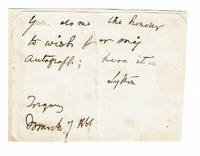 You do me the honour
to wish for my
autograph; here it is
Lytton
Torquay